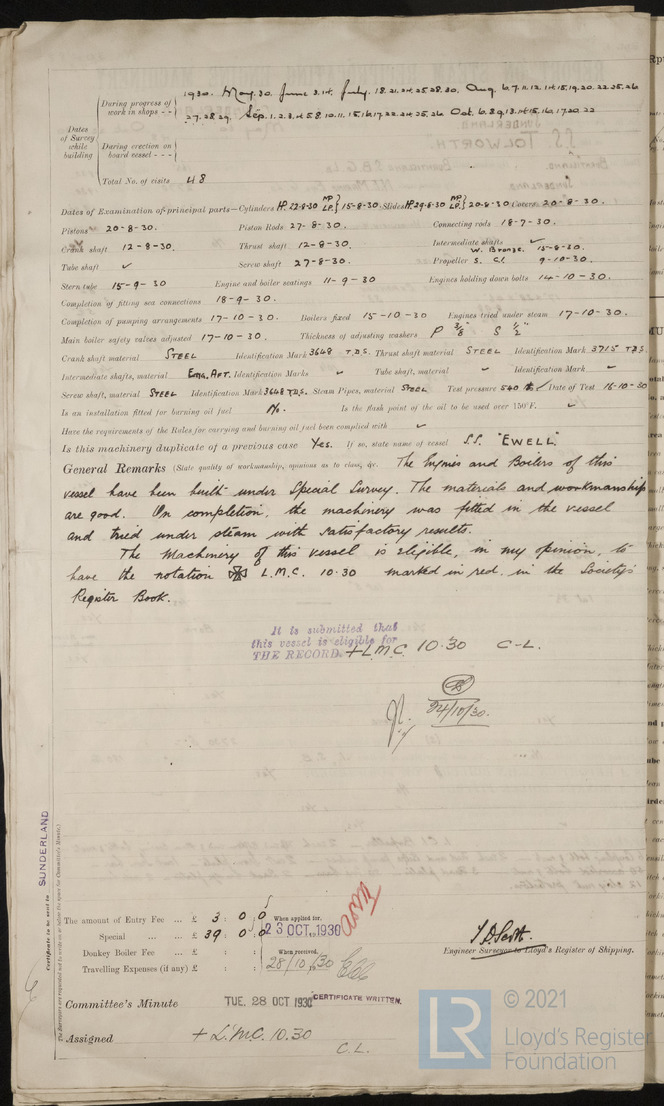 During progress of work in shops - - 1930. May. 30. June 3. 14. July. 18. 21. 24. 25. 28. 30. Aug. 6. 7. 11. 12. 14. 15. 19. 20. 22. 25. 26
27. 28. 29. Sep. 1. 2. 3. 4. 5. 8. 10. 11. 15. 16. 17. 22. 24. 25. 26 Oct. 6. 8. 9. 13. 14. 15. 16. 17. 20. 22
Dates of Survey while building
During erection on board vessel - - -
Total No. of visits 48
Dates of Examination of principal parts—Cylinders HP. 22-8-30 MP LP. } 15-8-30 Slides HP. 29-8-30 MP LP. } 20-8-30 Covers 20-8-30.
Pistons 20-8-30. Piston Rods 27-8-30. Connecting rods 18-7-30.
Crank shaft 12-8-30. Thrust shaft 12-8-30. Intermediate shafts ✓ W. Bronze. 15-8-30.
Tube shaft ✓ Screw shaft 27-8-30 Propeller S. CI. 9-10-30.
Stern tube 15-9-30 Engine and boiler seatings 11-9-30 Engines holding down bolts 14-10-30.
Completion of fitting sea connections 18-9-30.
Completion of pumping arrangements 17-10-30. Boilers fixed 15-10-30 Engines tried under steam 17-10-30.
Main boiler safety valves adjusted 17-10-30. Thickness of adjusting washers P 3/8 S 1/2"
Crank shaft material STEEL Identification Mark 3648 T.D.S. Thrust shaft material STEEL Identification Mark 3715 T.D.S.
Intermediate shafts, material Eng. Aft. Identification Marks ✓ Tube shaft, material ✓ Identification Mark ✓
Screw shaft, material STEEL Identification Mark 3648 T.D.S. Steam Pipes, material STEEL Test pressure 540 lb ✓ Date of Test 16-10-30
Is an installation fitted for burning oil fuel No. Is the flash point of the oil to be used over 150°F. ✓
Have the requirements of the Rules for carrying and burning oil fuel been complied with ✓
Is this machinery duplicate of a previous case Yes. If so, state name of vessel S.S. "EWELL."
General Remarks (State quality of workmanship, opinions as to class, &c. The Engines and Boilers of this
vessel have been built under Special Survey. The materials and workmanship
are good. On completion, the machinery was fitted in the vessel
and tried under steam with satisfactory results.
The Machinery of this vessel is eligible, in my opinion, to
have the notation ✠ L.M.C. 10.30 marked in red, in the Society's
Register Book.
It is submitted that
this vessel is eligible for
THE RECORD. + L.M.C. 10.30 C-L.
24/10/30.
Certificate to be sent to SUNDERLAND
The amount of Entry Fee ... £ 3 : 0 : 0 When applied for,
Special ... ... £ 39 : 0 : 0 23 OCT. 1930
Donkey Boiler Fee ... £ : : When received,
Travelling Expenses (if any) £ : : 28/10/30
T. D. Scott.
Engineer Surveyor to Lloyd's Register of Shipping.
Committee's Minute TUE. 28 OCT 1930 CERTIFICATE WRITTEN.
Assigned + L.M.C. 10.30
C.L.
LR © 2021
Lloyd's Register
Foundation